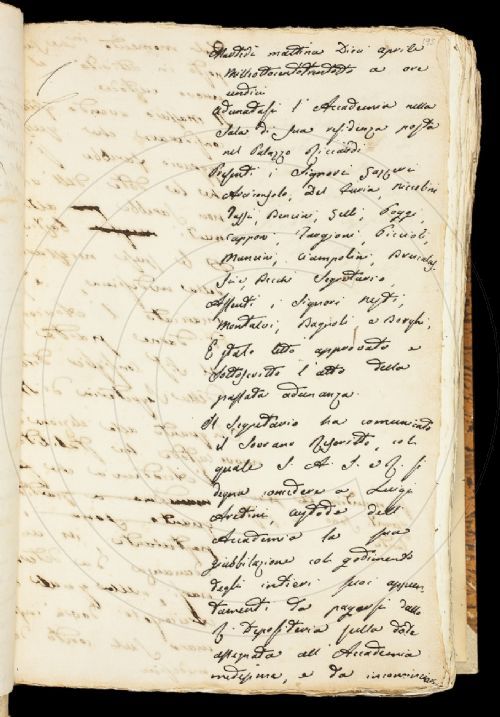 Martedì mattina Dieci aprile
Milleottocentotrentotto a ore
undici
Adunatasi l'Accademia nella
Sala di sua residenza posta
nel Palazzo Riccardi
Presenti i Signori Gazzeri
Arciconsolo, Del Furia, Niccolini
Tassi, Bencini, Gelli, Poggi,
Capponi, Targioni, Piccioli,
Mancini, Ciampolini, Bruscolini,
Becchi Segretario,
Assenti i Signori Nesti,
Montalvi, Bagnoli e Borghi,
È stato letto approvato e
sottoscritto l'atto della
passata adunanza.
Il Segretario ha comunicato
il Sovrano Rescritto, col
quale S. A. I. e R. si
degna concedere a Luigi
Aretini, custode dell'
Accademia la sua
giubbilazione col godimento
degli intieri suoi appun-
tamenti da pagarsi dalla
R. Depositeria sulla dote
assegnata all'Accademia
medesima, e da incominciare